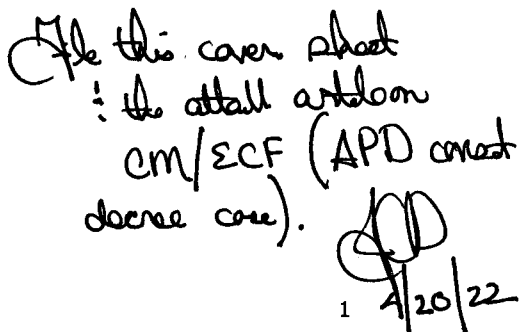 File this cover sheet
: the attall article on
CM/ECF (APD consent
decree case).
1 4/20/22